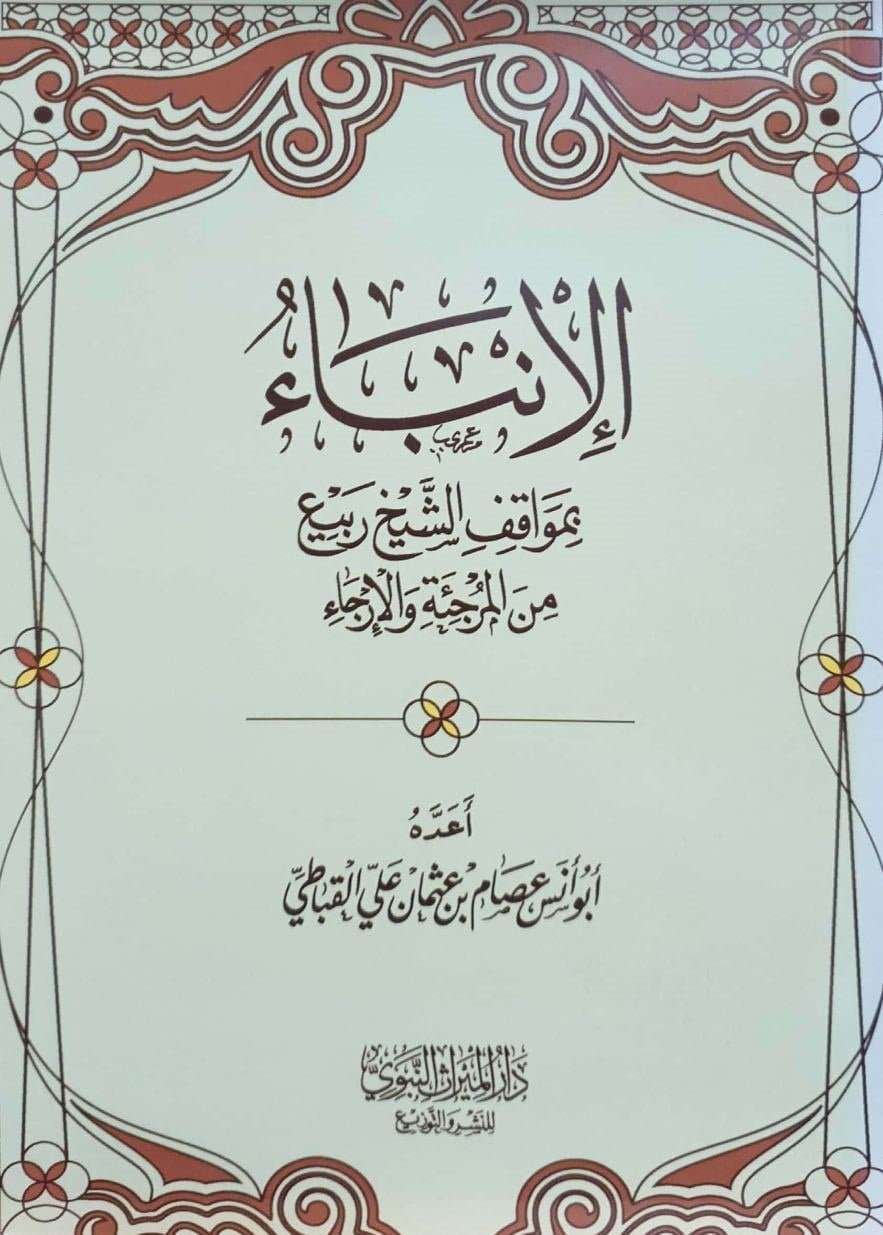 الإِنْبَاءُ
بِمَوَاقِفِ الشَّيْخِ رَبِيْعٍ
مِنَ المُرْجِئَةِ وَالْإِرْجَاءِ
أَعَدَّهُ
أَبُو أَنَس عِصَام بْن عُثْمَان عَلِيّ القُبَاطِيّ
دَارُ المِيرَاثِ النَّبَوِيِّ
لِلنَّشْرِ وَالتَّوْزِيْعِ